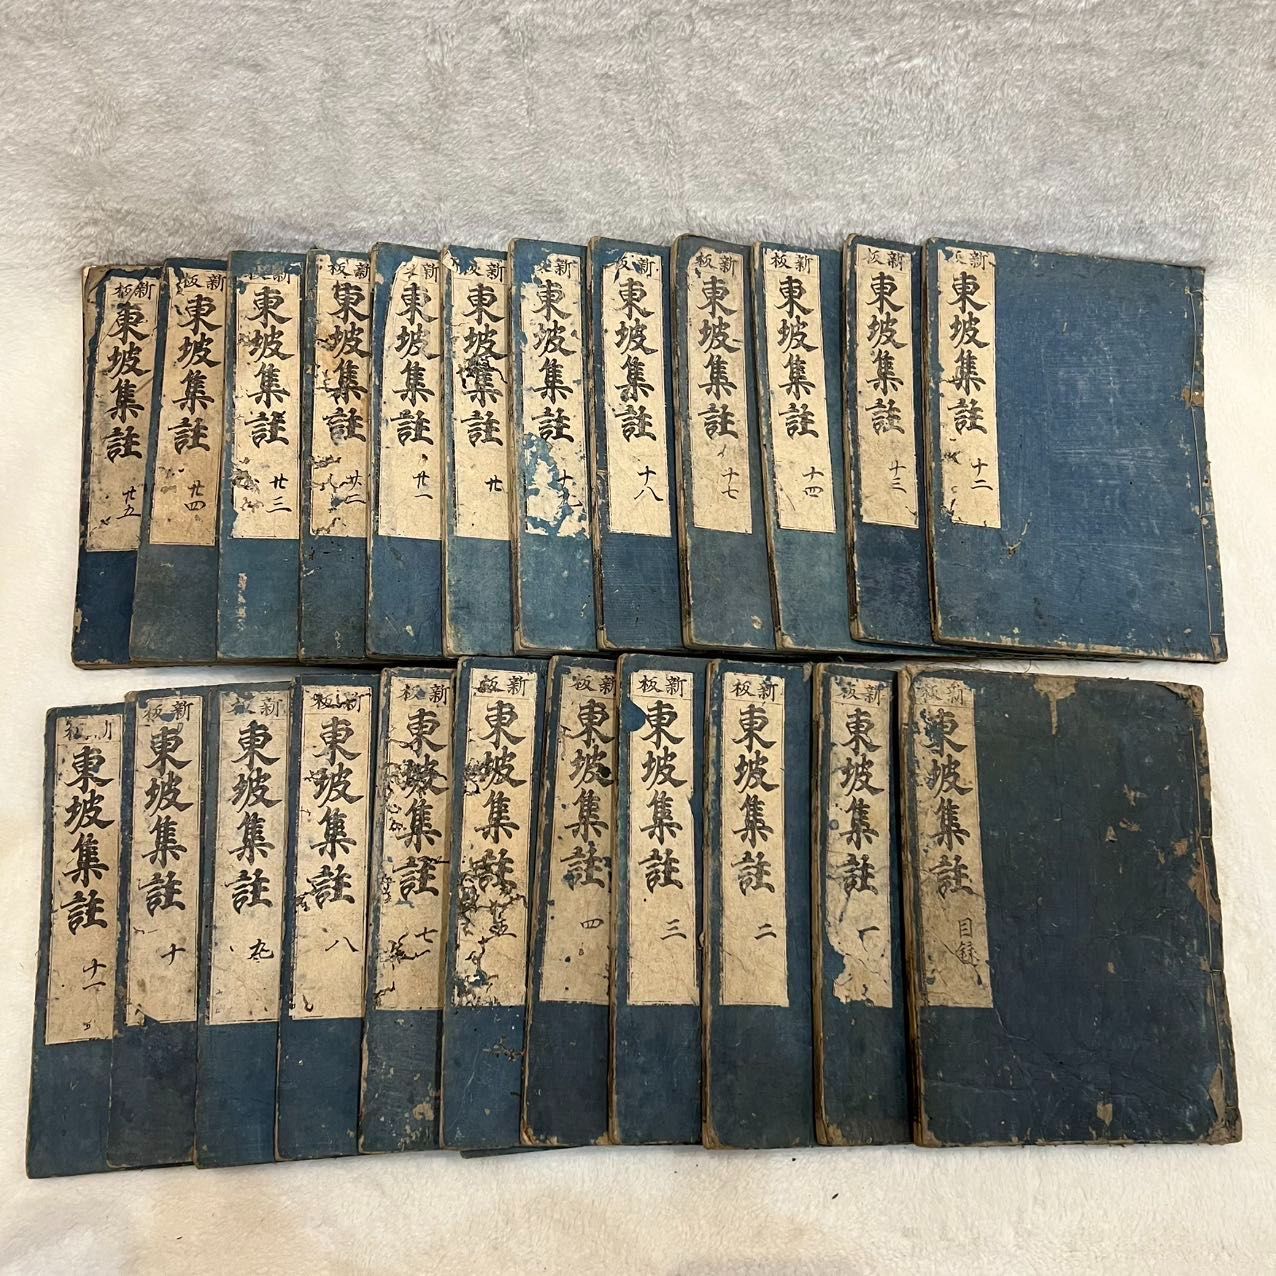 新板
東坡集註
十二
新板
東坡集註
十三
新板
東坡集註
十四
新板
東坡集註
十七
新板
東坡集註
十八
新
東坡集註
十
新板
東坡集註
廿
新板
東坡集註
廿一
新板
東坡集註
廿二
新板
東坡集註
廿三
新板
東坡集註
廿四
新板
東坡集註
廿五
新板
東坡集註
目録
新板
東坡集註
一
新板
東坡集註
二
新板
東坡集註
三
新板
東坡集註
四
新板
東坡集註
五
新板
東坡集註
七
新板
東坡集註
八
新板
東坡集註
九
新板
東坡集註
十
新板
東坡集註
十一